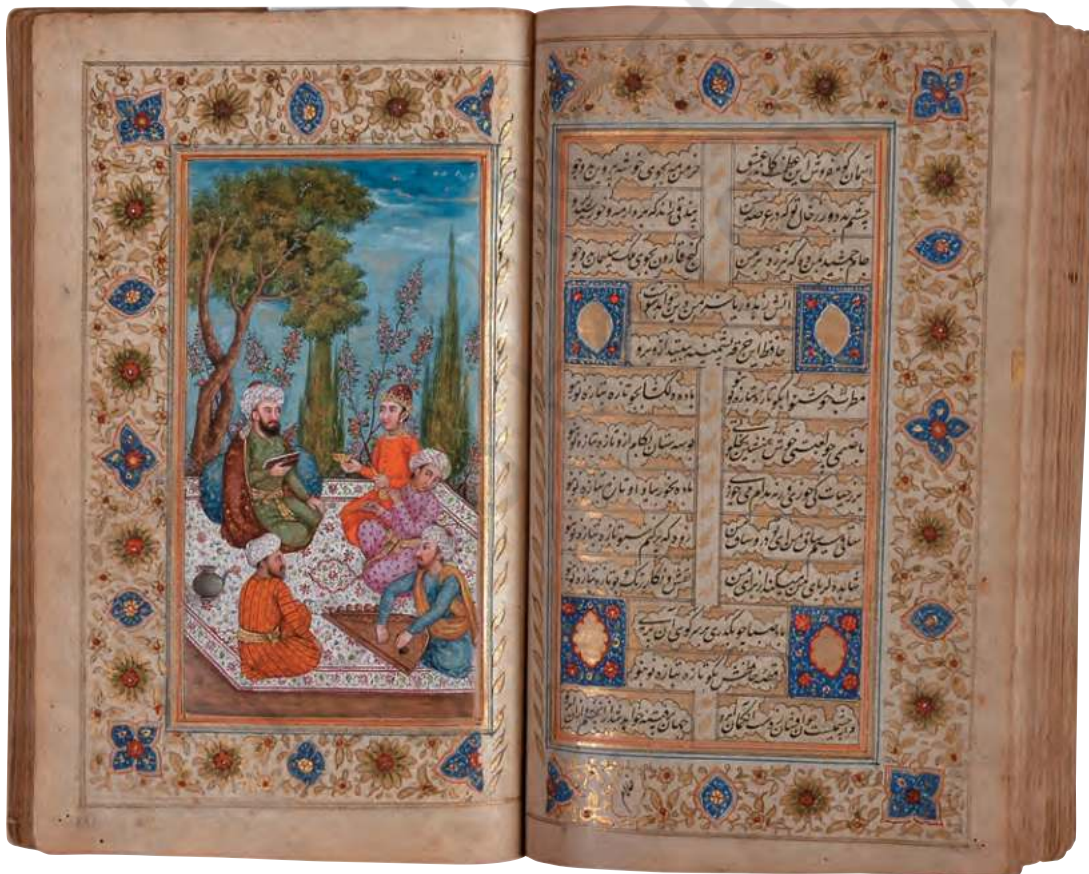 آسمان گو مفروش این عظمت کاندر عشق خرمن مه بجوی خوشه پروین بدو جو
چشم بد دور ز خال تو که در عرصه حسن بیدقی راند که برد از مه و خورشید گرو
جام جمشید بمن ده که نیرزد بر من گنج قارون بجوی ملک سلیمان بدو جو
آتش زهد و ریا خرمن دین خواهد سوخت
حافظ این خرقه پشمینه بینداز و برو
مطرب خوشنوا بگو تازه بتازه نو بنو باده دلگشا بجو تازه بتازه نو بنو
با صنمی چو لعبتی خوش بنشین بخلوتی بوسه ستان بکام ازو تازه بتازه نو بنو
بر ز حیات کی خوری گر نه مدام می خوری باده بخور بیاد او تازه بتازه نو بنو
ساقی سیم ساق من زود که پر کنم سبو تازه بتازه نو بنو
شاهد دلربای من میکند از برای من نقش و نگار و رنگ و بو تازه بتازه نو بنو
باد صبا چو بگذری بر سر کوی آن پری
قصه حافظش بگو تازه بتازه نو بنو